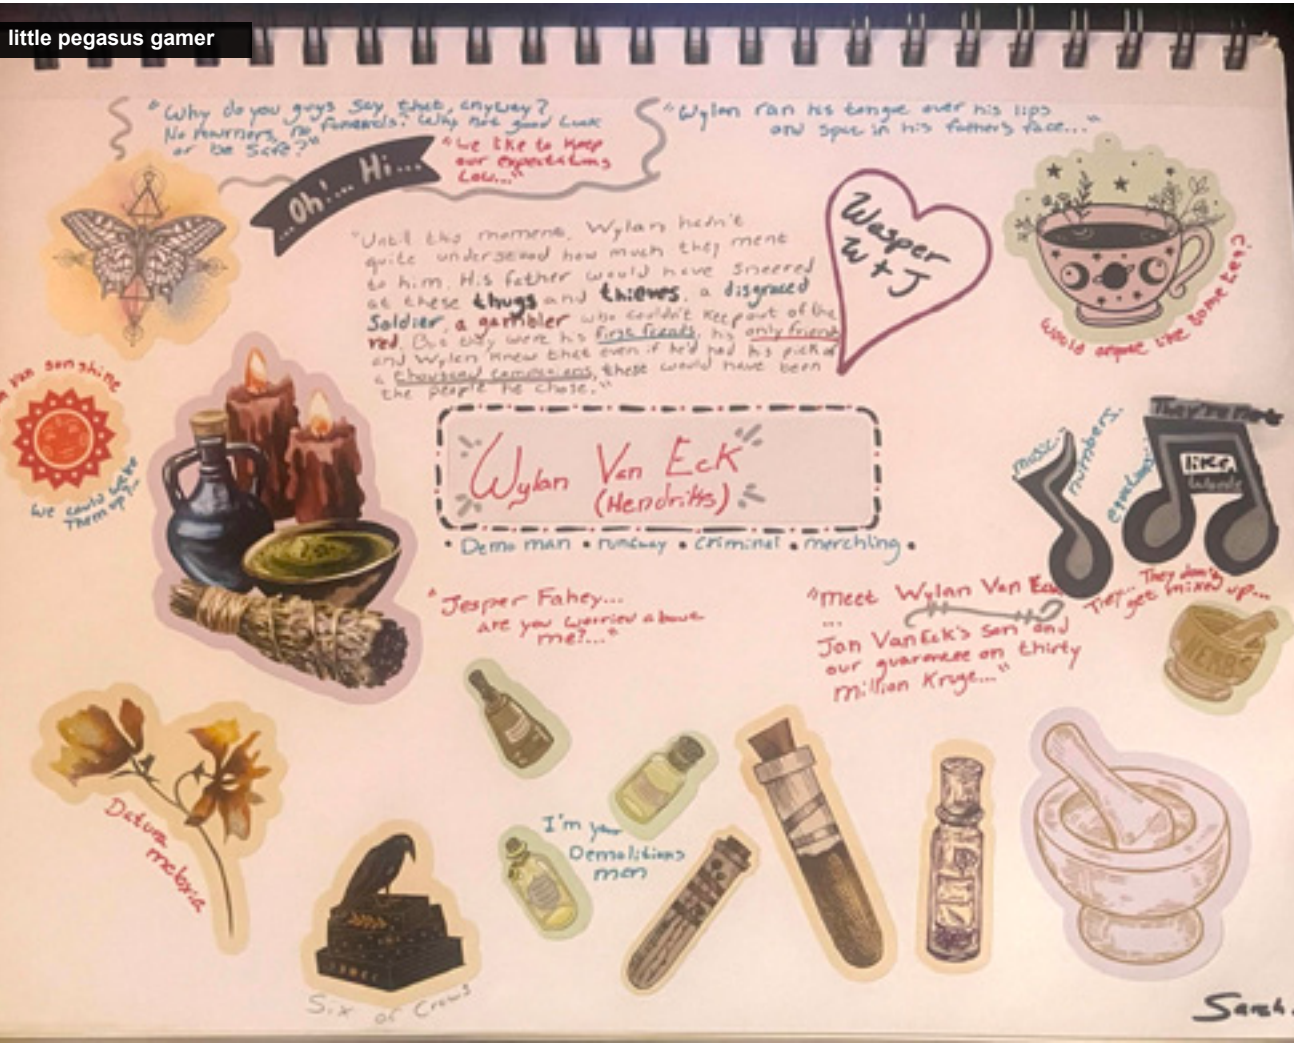 little pegasus gamer
"Why do you guys say that, anyway?
No mourners, no funerals? Why not good luck
or be safe?"
"We like to keep
our expectations
low..."
"Wylan ran his tongue over his lips
and spat in his fathers face..."
...Oh!... Hi...
"Until this moment, Wylan hadn't
quite understood how much they ment
to him. His father would have sneered
at these thugs and thieves, a disgraced
Soldier, a gambler who couldn't keep out of the
red. But they were his first friends, his only friends
and Wylan knew that even if he'd had his pick of
a thousand companions, these would have been
the people he chose."
Wesper
W + J
Would anyone like some tea?
sunshine
We could wake
them up?...
Wylan Van Eck
(Hendriks)
• Demo man • runaway • criminal • merchling •
music.
numbers.
equations.
They're not
like
words
They... They don't
get mixed up...
"Jesper Fahey...
are you worried about
me?..."
"Meet Wylan Van Eck
...
Jan Van Eck's son and
our guarantee on thirty
million Kruge..."
HERBS
Datura
meloxia
I'm your
Demolitions
man
Six of Crows
Sarah.